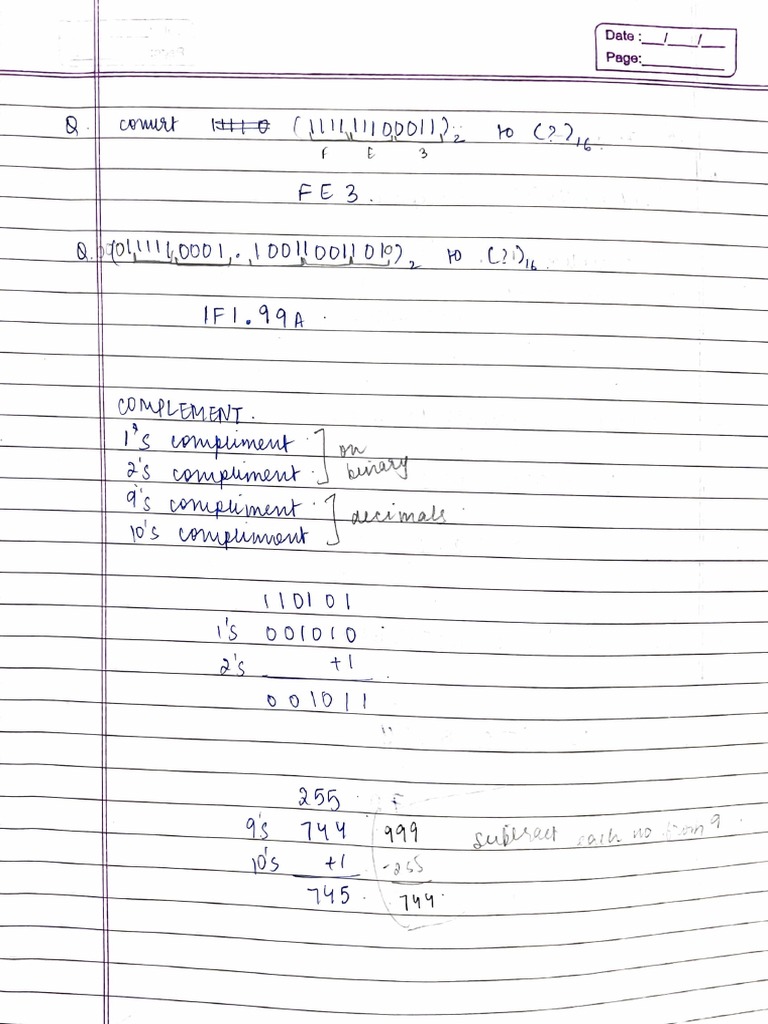 Date :__/__/__
Page:________
Q. convert (111111100011)₂ to (?)₁₆
F E 3
FE3.
Q. (000111110001.100110011010)₂ to (?)₁₆
1F1.99A
COMPLEMENT.
1's compliment
on
2's compliment
binary
9's compliment
decimals
10's compliment
110101
1's 001010
2's +1
001011
255
9's 744 999 subtract each no from 9
10's +1 -255
745 744